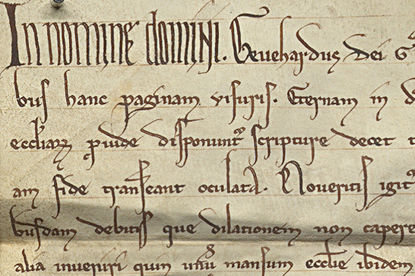 In nomine domini. Gevehardus dei G
bus hanc paginam visuris. Eternam in d
eccl'iarꝫ p̱vide disponunt᷑ scripture decet t
am fide transeant oculata. Noveritis igit᷑
busdam debitis que dilationem non capere
alia inveniri quin unū mansum ecclie ibidem